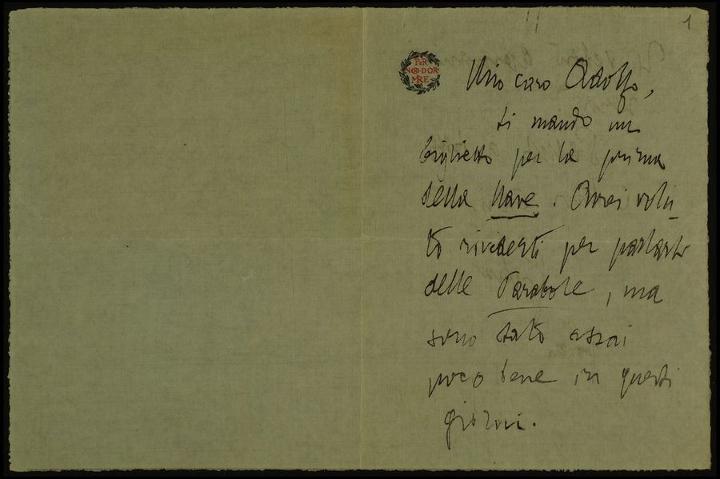 1
PER
NON DOR
MIRE
Mio caro Adolfo,
ti mando un
biglietto per la prima
della Nave. Avrei volu
to rivederti per parlarti
delle Parabole, ma
sono stato assai
poco bene in questi
giorni.